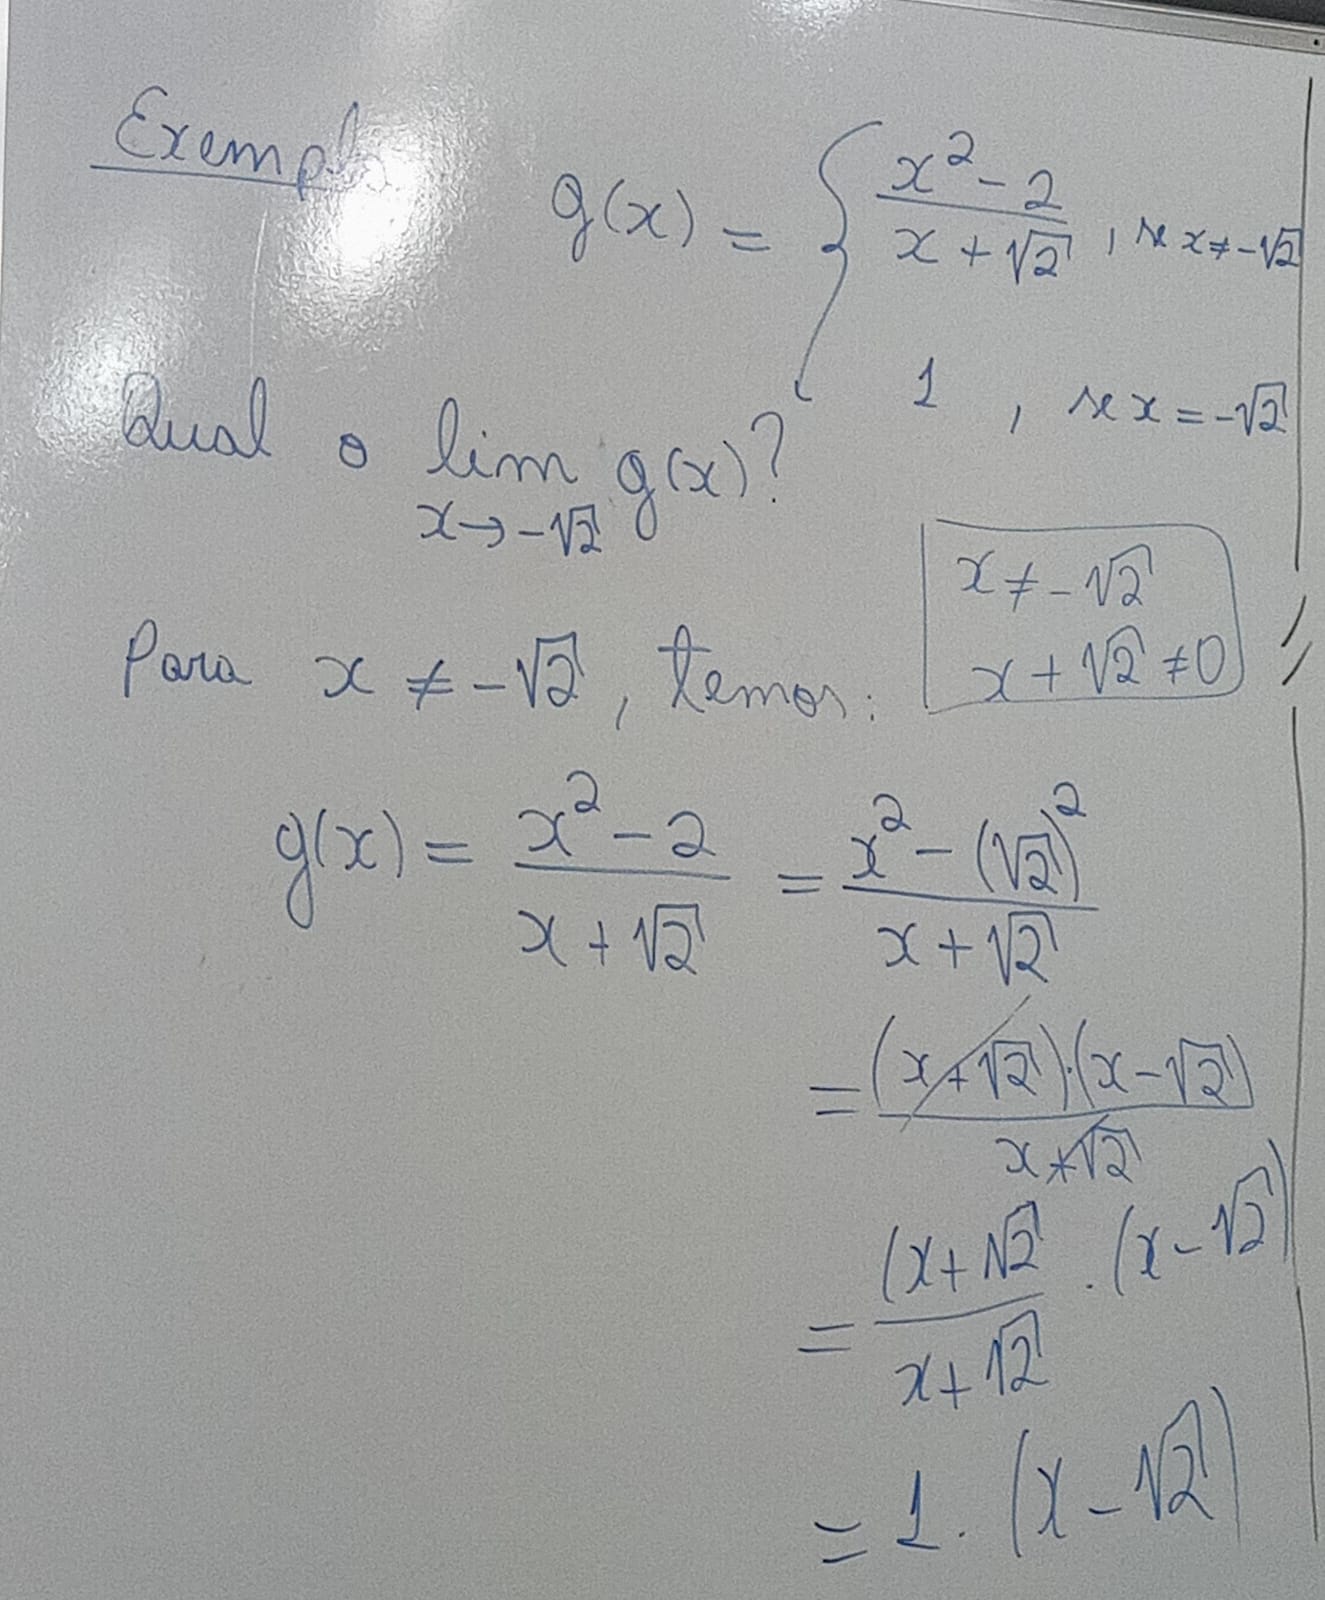 Exemplo
g(x) = { x² - 2 / x + √2 , se x ≠ -√2
1 , se x = -√2
Qual o lim g(x)?
x → -√2
x ≠ -√2
x + √2 ≠ 0
Para x ≠ -√2, temos:
g(x) = x² - 2 / x + √2 = x² - (√2)² / x + √2
= (x + √2)·(x - √2) / x + √2
= (x + √2 / x + √2 . (x - √2)
= 1. (x - √2)